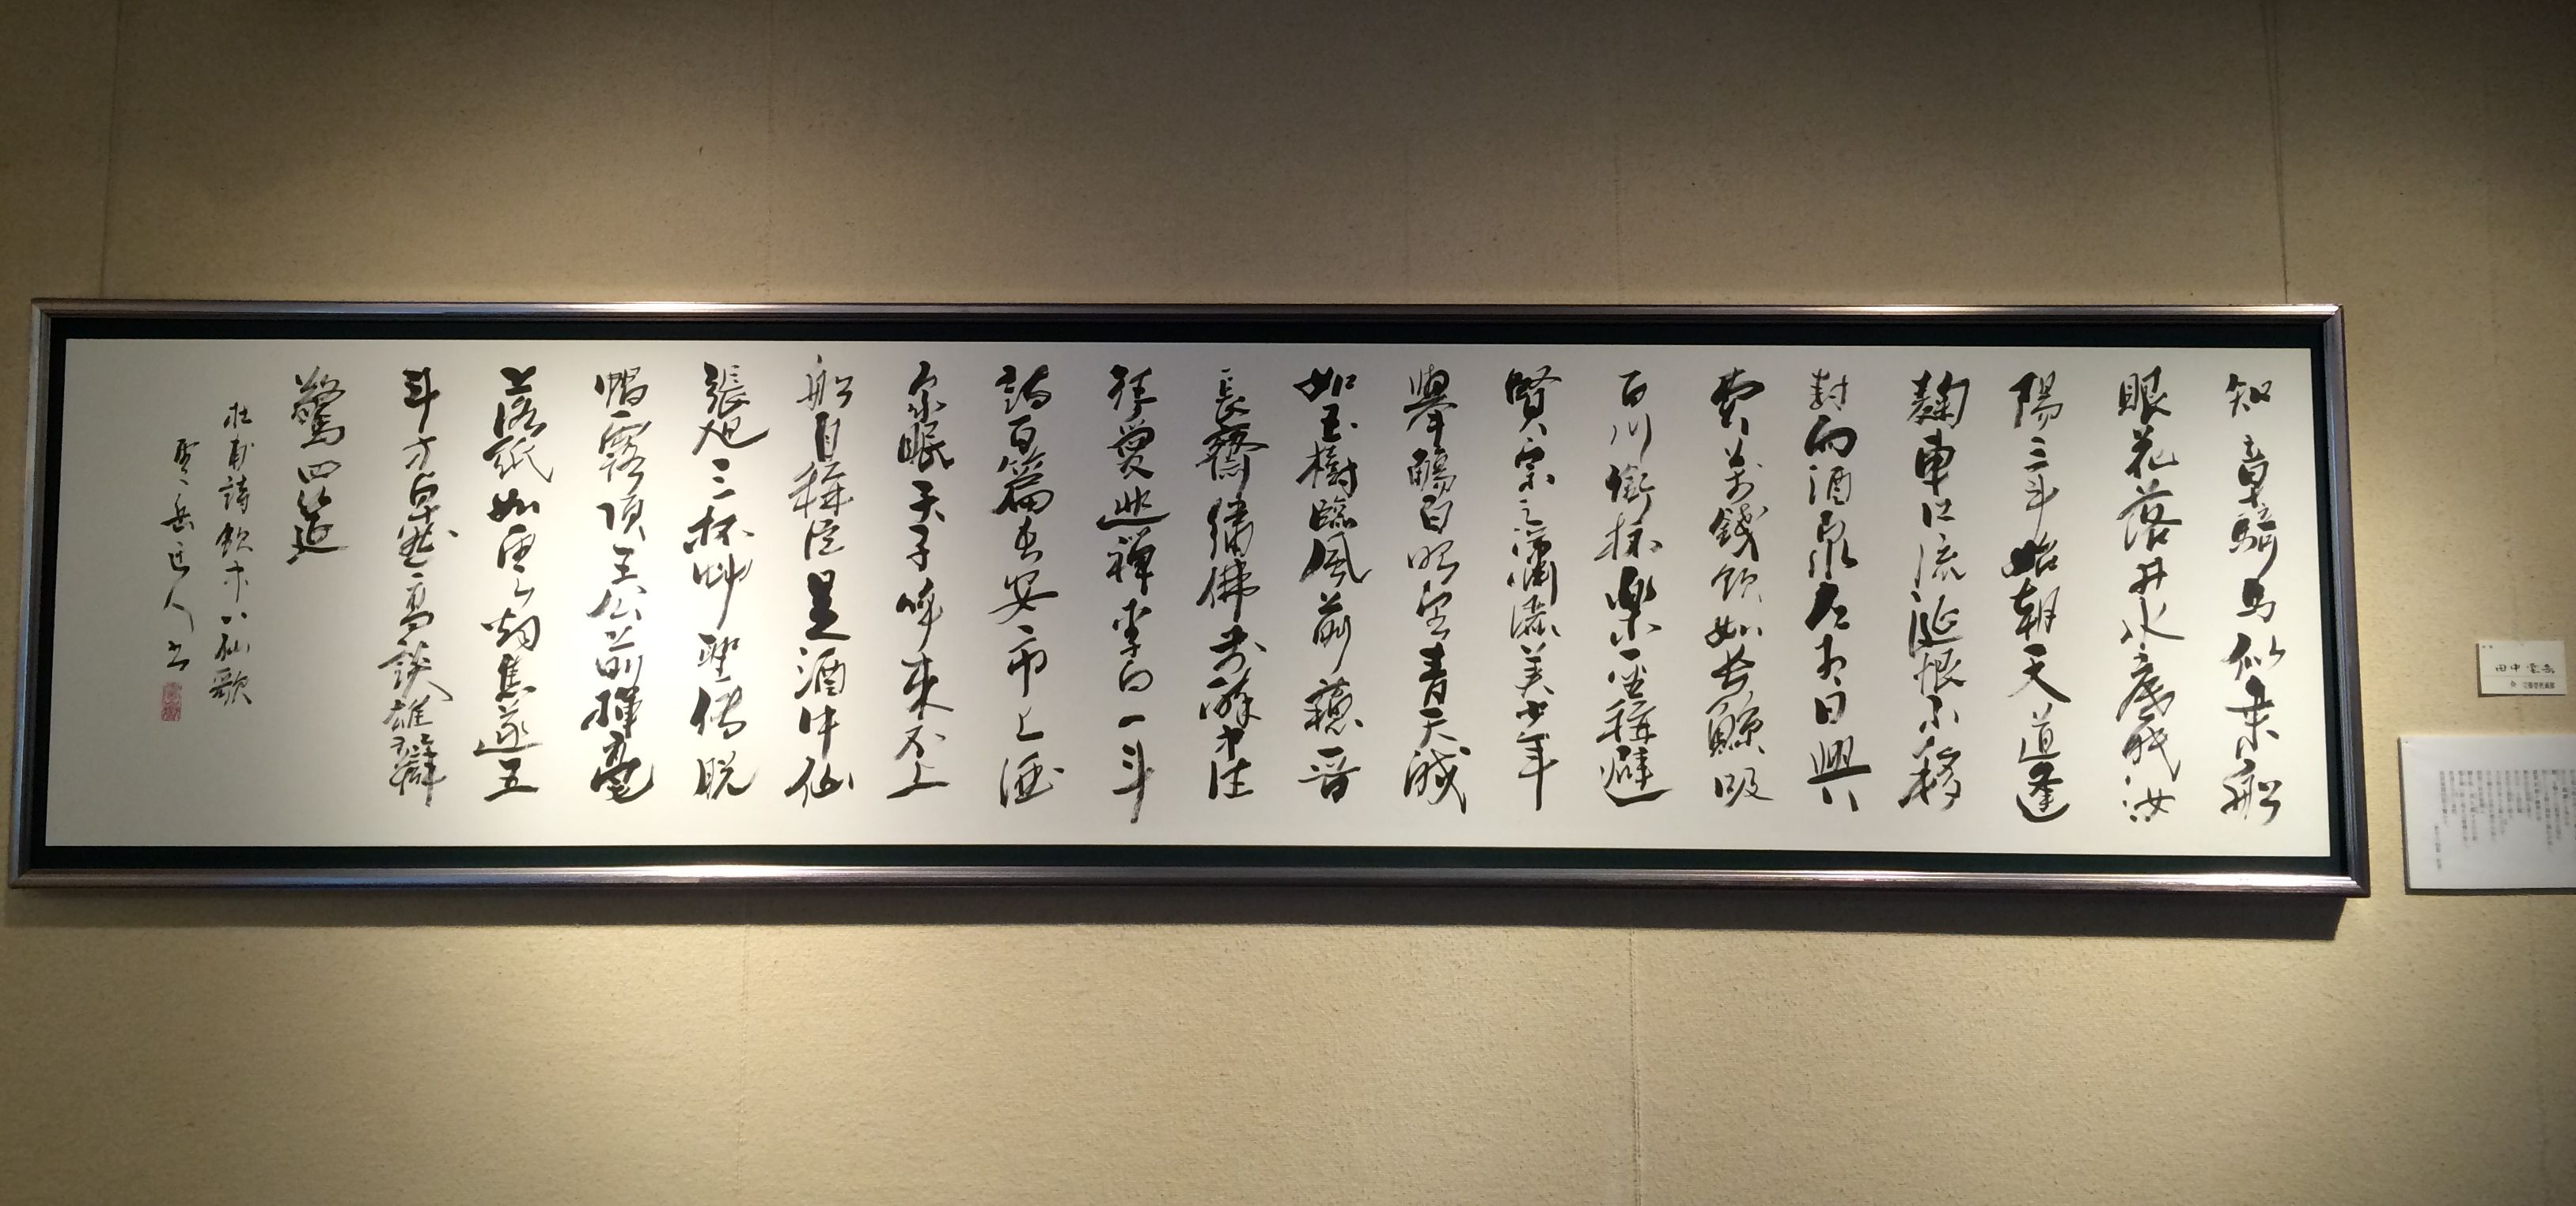 知章騎馬似乗船
眼花落井水底眠汝
陽三斗始朝天道逢
麹車口流涎恨不移
封向酒泉左相日興
費萬錢飲如長鯨吸
百川銜杯樂聖稱避
賢宗之瀟灑美少年
舉觴白眼望青天皎
如玉樹臨風前蘇晉
長齋繍佛前醉中往
往愛逃禪李白一斗
詩百篇長安市上酒
家眠天子呼來不上
船自稱臣是酒中仙
張旭三杯草聖傳脱
帽露頂王公前揮毫
落紙如雲烟焦遂五
斗方卓然高談雄辯
驚四筵
杜甫詩飲中八仙歌
雲岳迂人書
田中雲岳